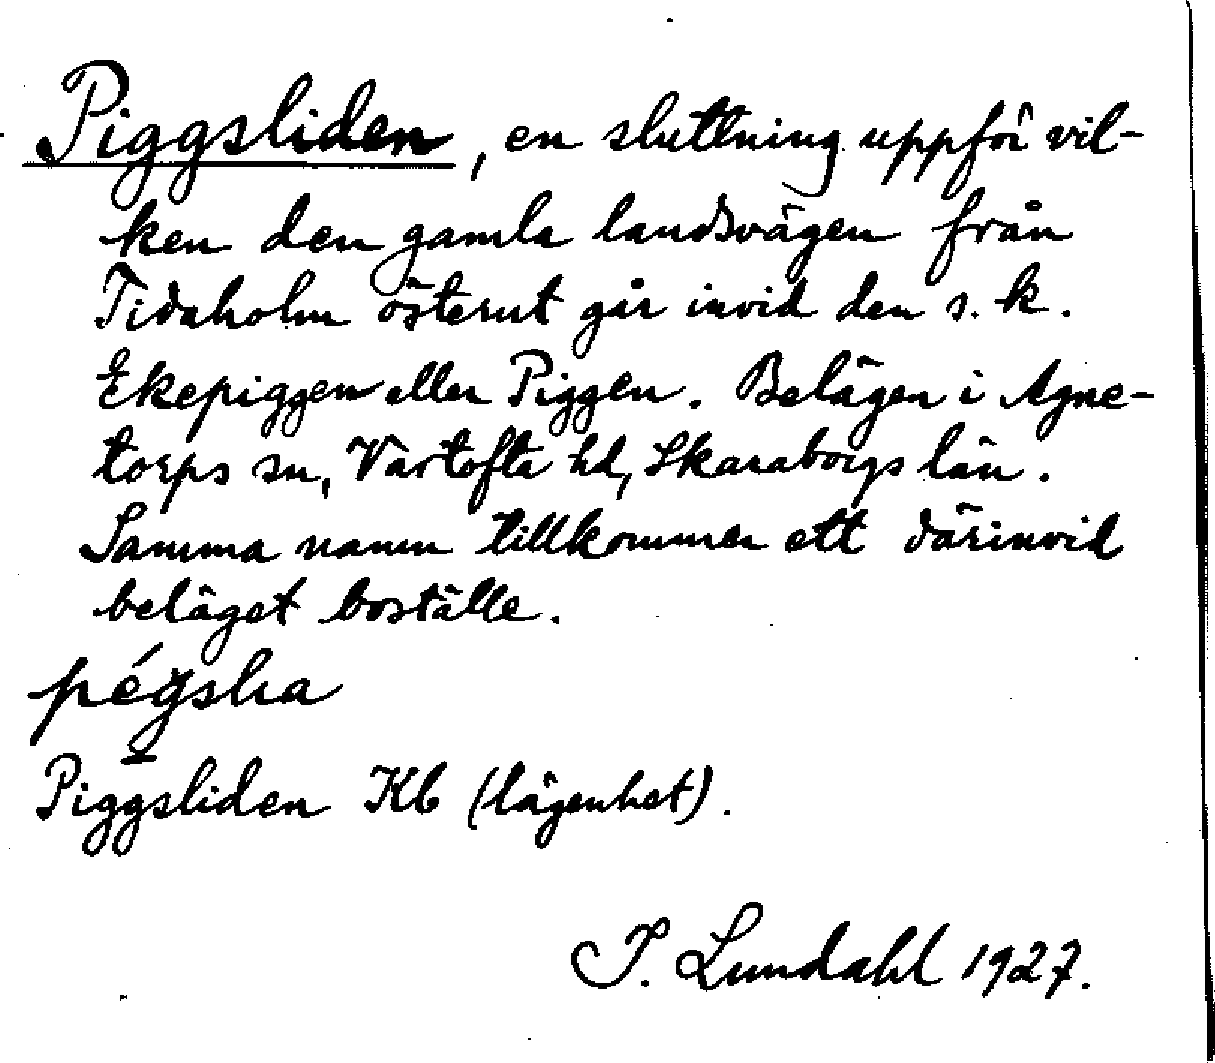 Piggsliden, en sluttning uppför vil-
ken den gamla landsvägen från
Tidaholm österut går invid den s. k.
Ekepiggen eller Piggen. Belägen i Agne-
torps sn, Vartofta hd, Skaraborgs län.
Samma namn tillkommer ett därinvid
beläget boställe.
Piggsliden Kb (lägenhet).
I. Lundahl 1927.